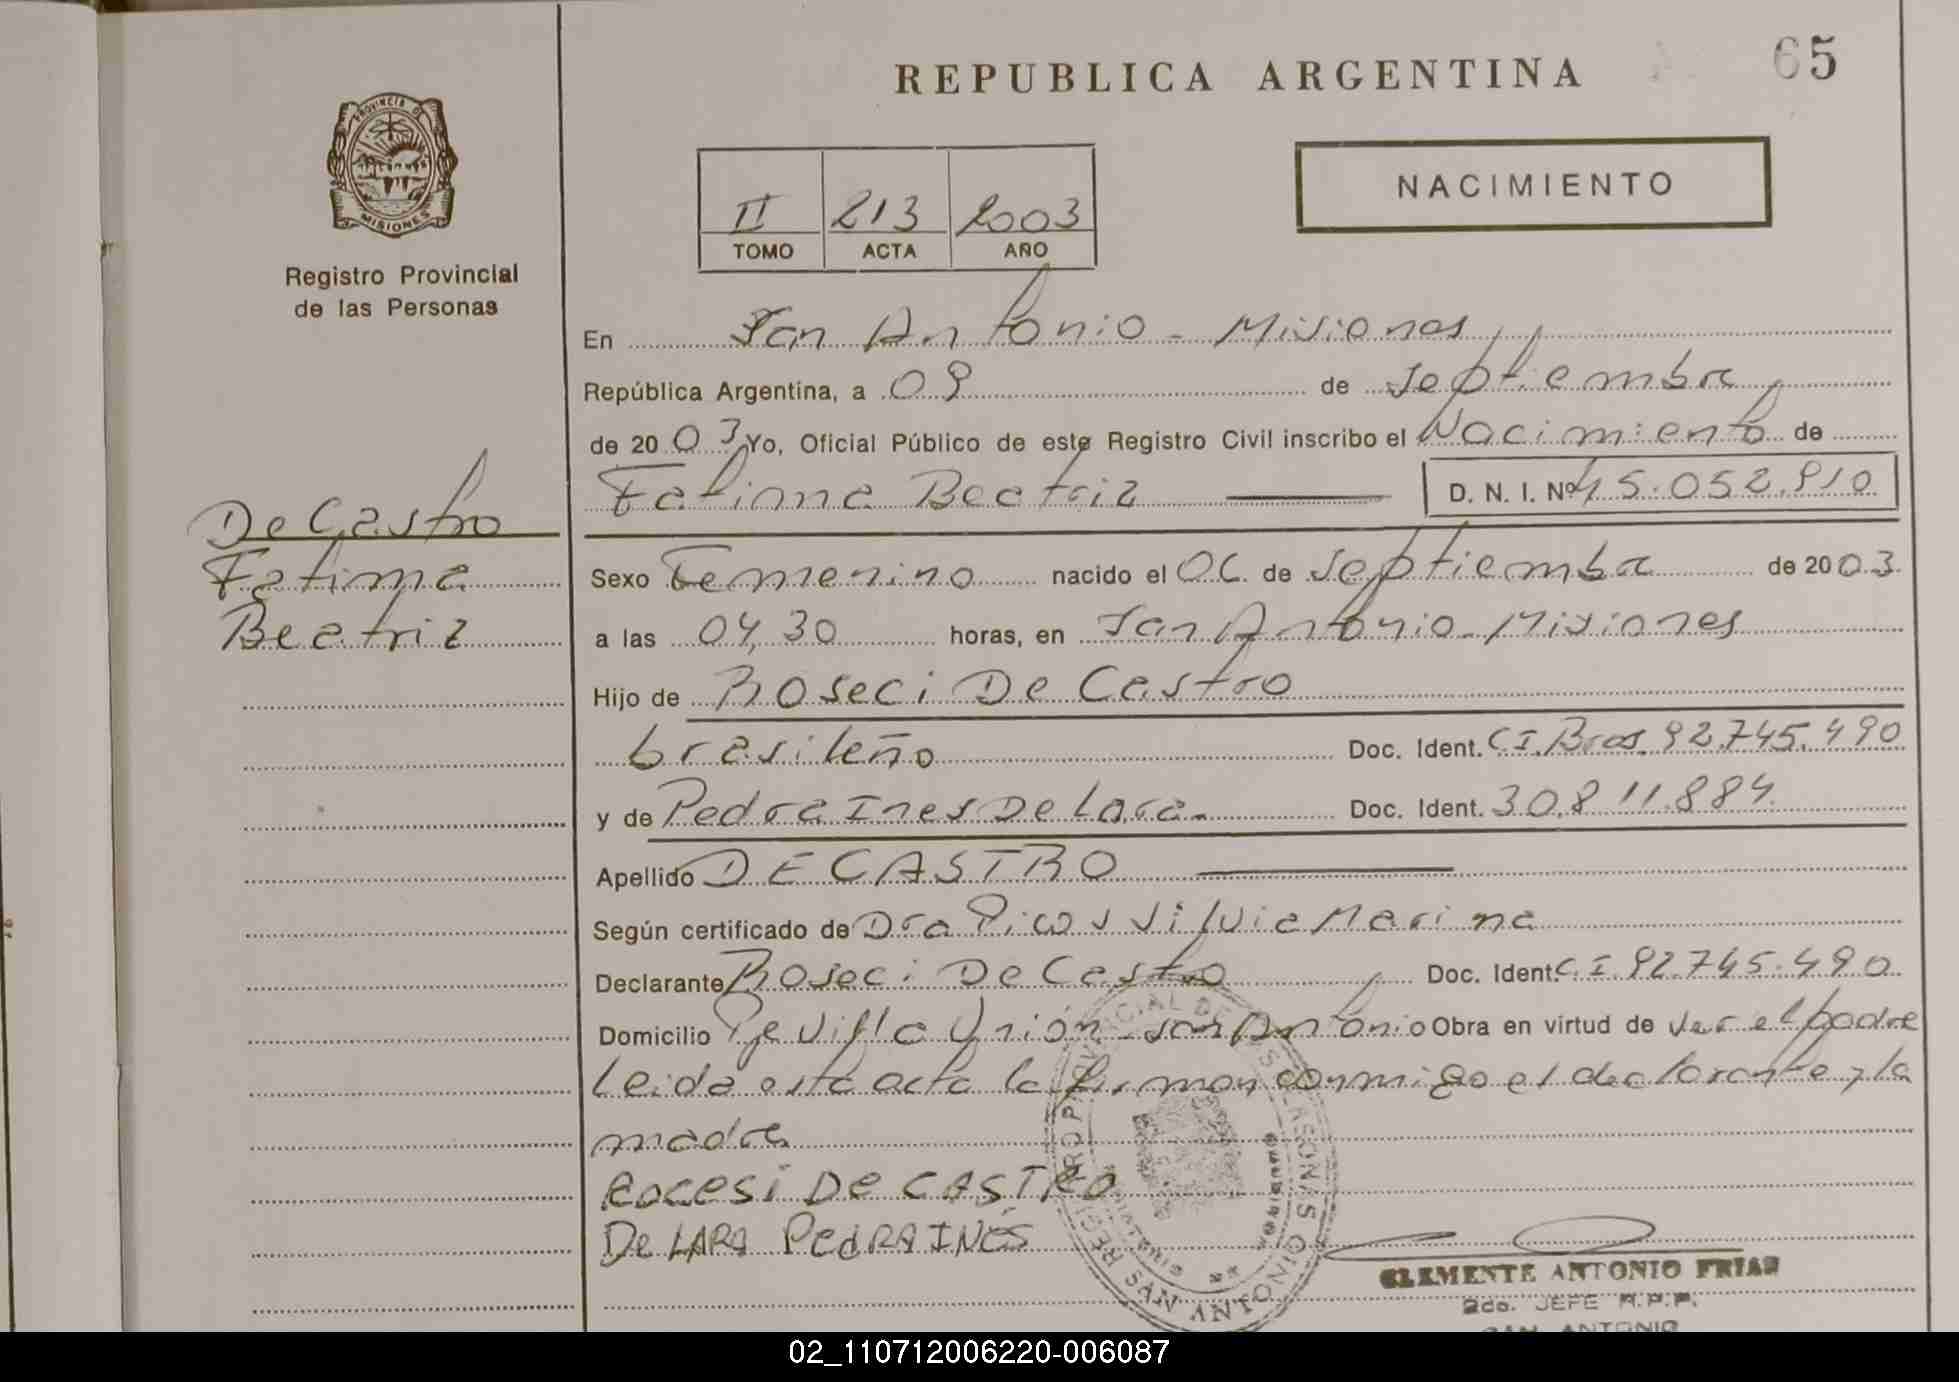 65
REPUBLICA ARGENTINA
PROVINCIA DE
MISIONES
Registro Provincial
de las Personas
NACIMIENTO
II 213 2003
TOMO ACTA AÑO
En San Antonio - Misiones,
República Argentina, a 09 de septiembre,
de 2003 Yo, Oficial Público de este Registro Civil inscribo el Nacimiento de
Fatima Beatriz D. N. I. Nº 45.052.910
De Castro
Fatima
Beatriz
Sexo Femenino nacido el 06 de septiembre de 2003
a las 04,30 horas, en San Antonio - Misiones
Hijo de Roseci De Castro
brasileño Doc. Ident. C I. Bras. 92.745.490
y de Pedra Ines De Lara. Doc. Ident. 30.811.884
Apellido DE CASTRO
Según certificado de Dra Picos Silvia Marina
Declarante Roseci De Castro Doc. Ident. C. I. 92.745.490
Domicilio Pje Villa Unión - San Antonio Obra en virtud de ser el padre
Leida esta acta la firman conmigo el declarante y la
madre
ROCESI DE CASTRO
De LARA PEDRA INÉS
CLEMENTE ANTONIO FRIAS
2do. JEFE R.P.P.
SAN ANTONIO
02_110712006220-006087